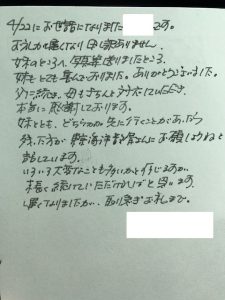 4/22にお世話になりました です。
お礼が遅くなり申し訳ありません。
妹のところへ、写真送りましたところ、
妹もとても喜んでおりました。ありがとうございました。
父に続き、母もきちんと対応していただき、
本当に感謝しております。
妹とも、どちらかが先に行くことがあったら
残った方が 屋さんにお願いしようねと
話しています。
いろいろ大変なことも多いかと存じますが、
末長く続けていただければと思います。
遅くなりましたが、取り急ぎお礼まで。